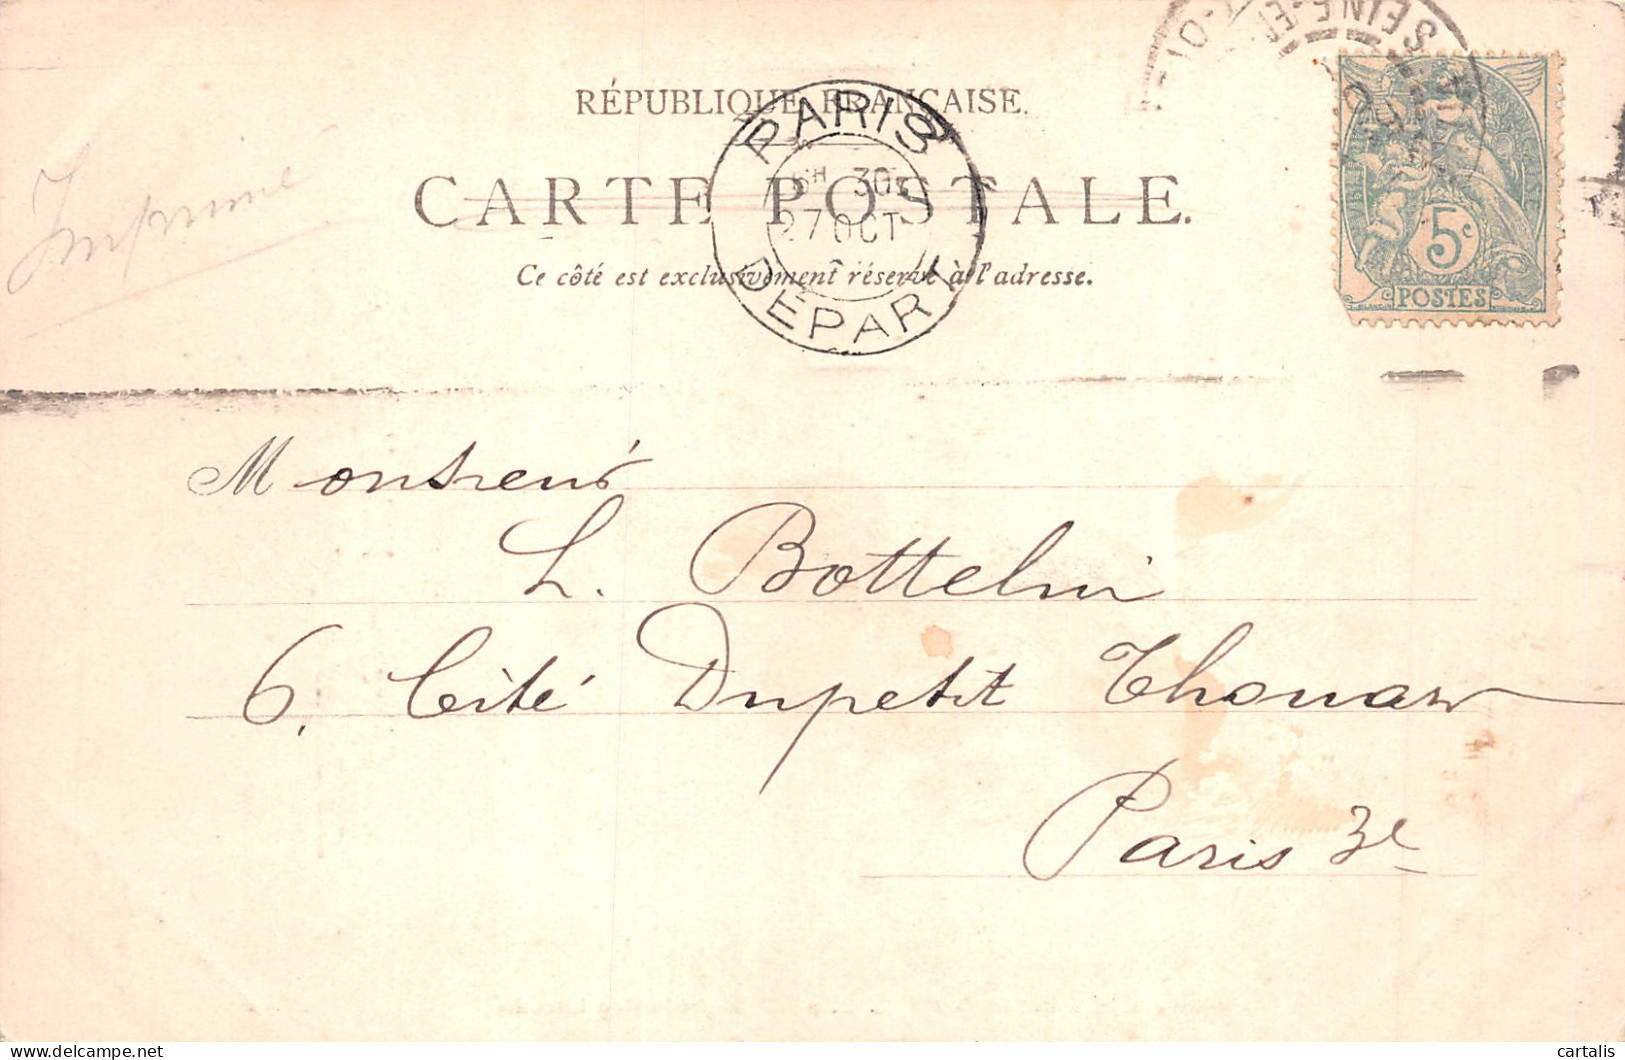 RÉPUBLIQUE FRANÇAISE.
CARTE POSTALE.
Ce côté est exclusivement réservé à l'adresse.
Imprimé
PARIS
30
27 OCT
DEPART
SEINE-ET-OI
5c
POSTES
Monsieur
L. Bottelin
6. Cité Dupetit Thouars
Paris 3e
delcampe.net
cartalis